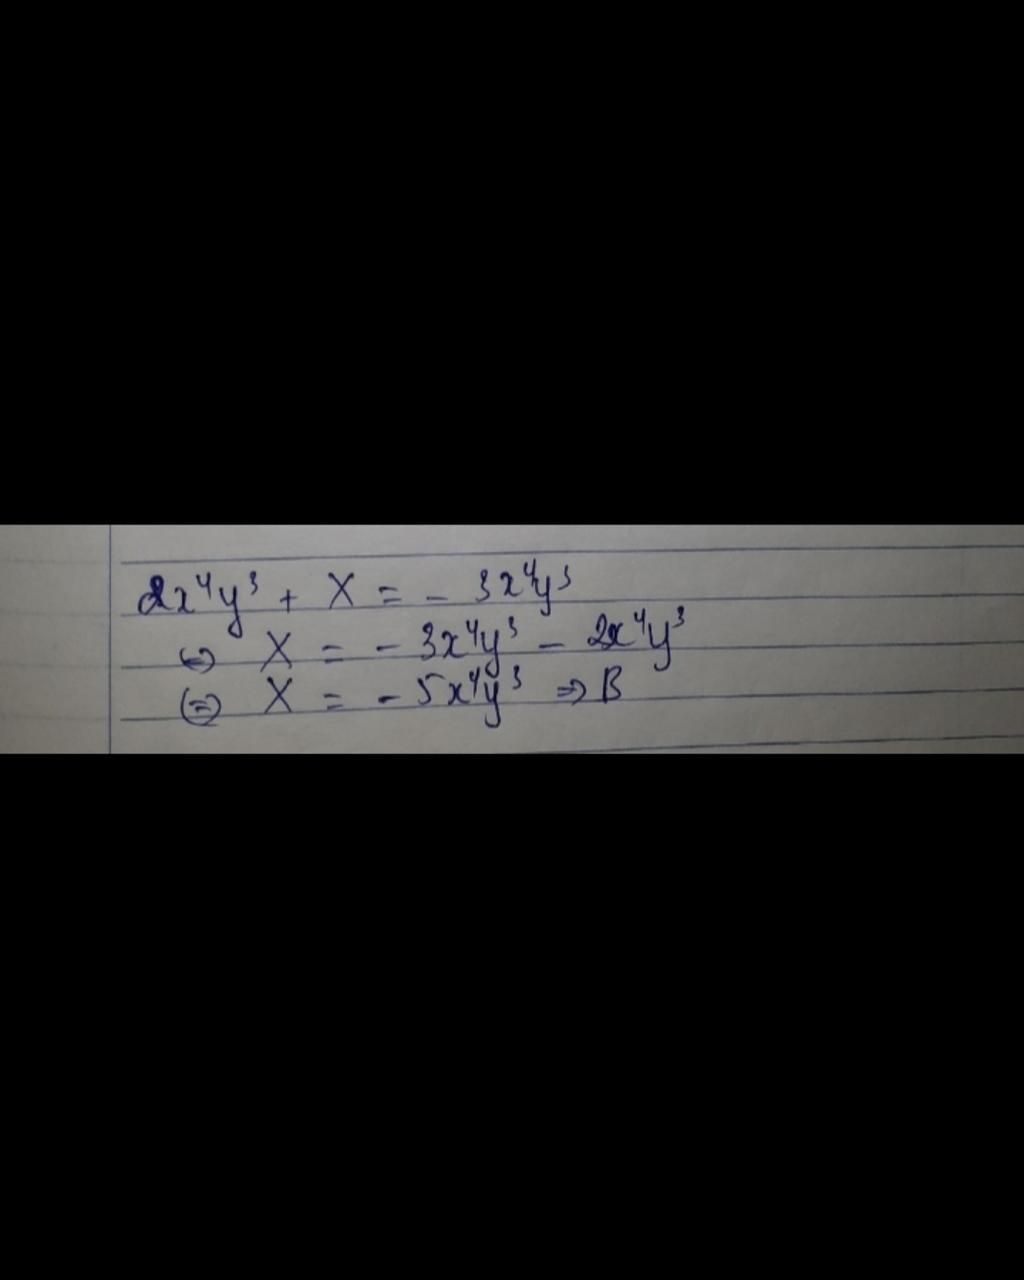 2x⁴y³ + X = - 3x⁴y³
⇔ X = - 3x⁴y³ - 2x⁴y³
⇔ X = - 5x⁴y³ ⇒ B